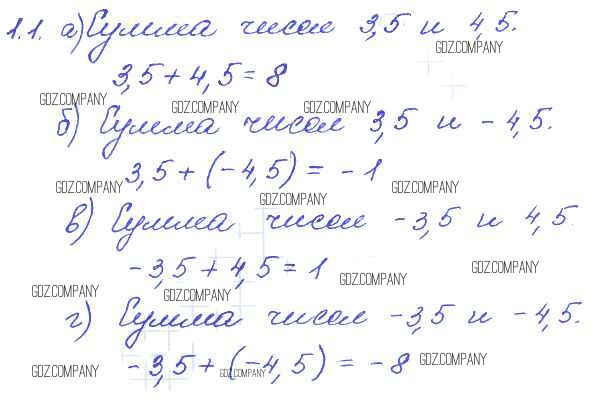 1.1. а) Сумма чисел 3,5 и 4,5.
GDZ.COMPANY
3,5 + 4,5 = 8
GDZ.COMPANY GDZ.COMPANY GDZ.COMPANY
б) Сумма чисел 3,5 и - 4,5.
3,5 + (-4,5) = - 1
GDZ.COMPANY GDZ.COMPANY
GDZ.COMPANY
в) Сумма чисел -3,5 и 4,5.
-3,5 + 4,5 = 1
GDZ.COMPANY GDZ.COMPANY
GDZ.COMPANY GDZ.COMPANY
г) Сумма чисел -3,5 и -4,5.
-3,5 + (-4,5) = -8
GDZ.COMPANY GDZ.COMPANY GDZ.COMPANY